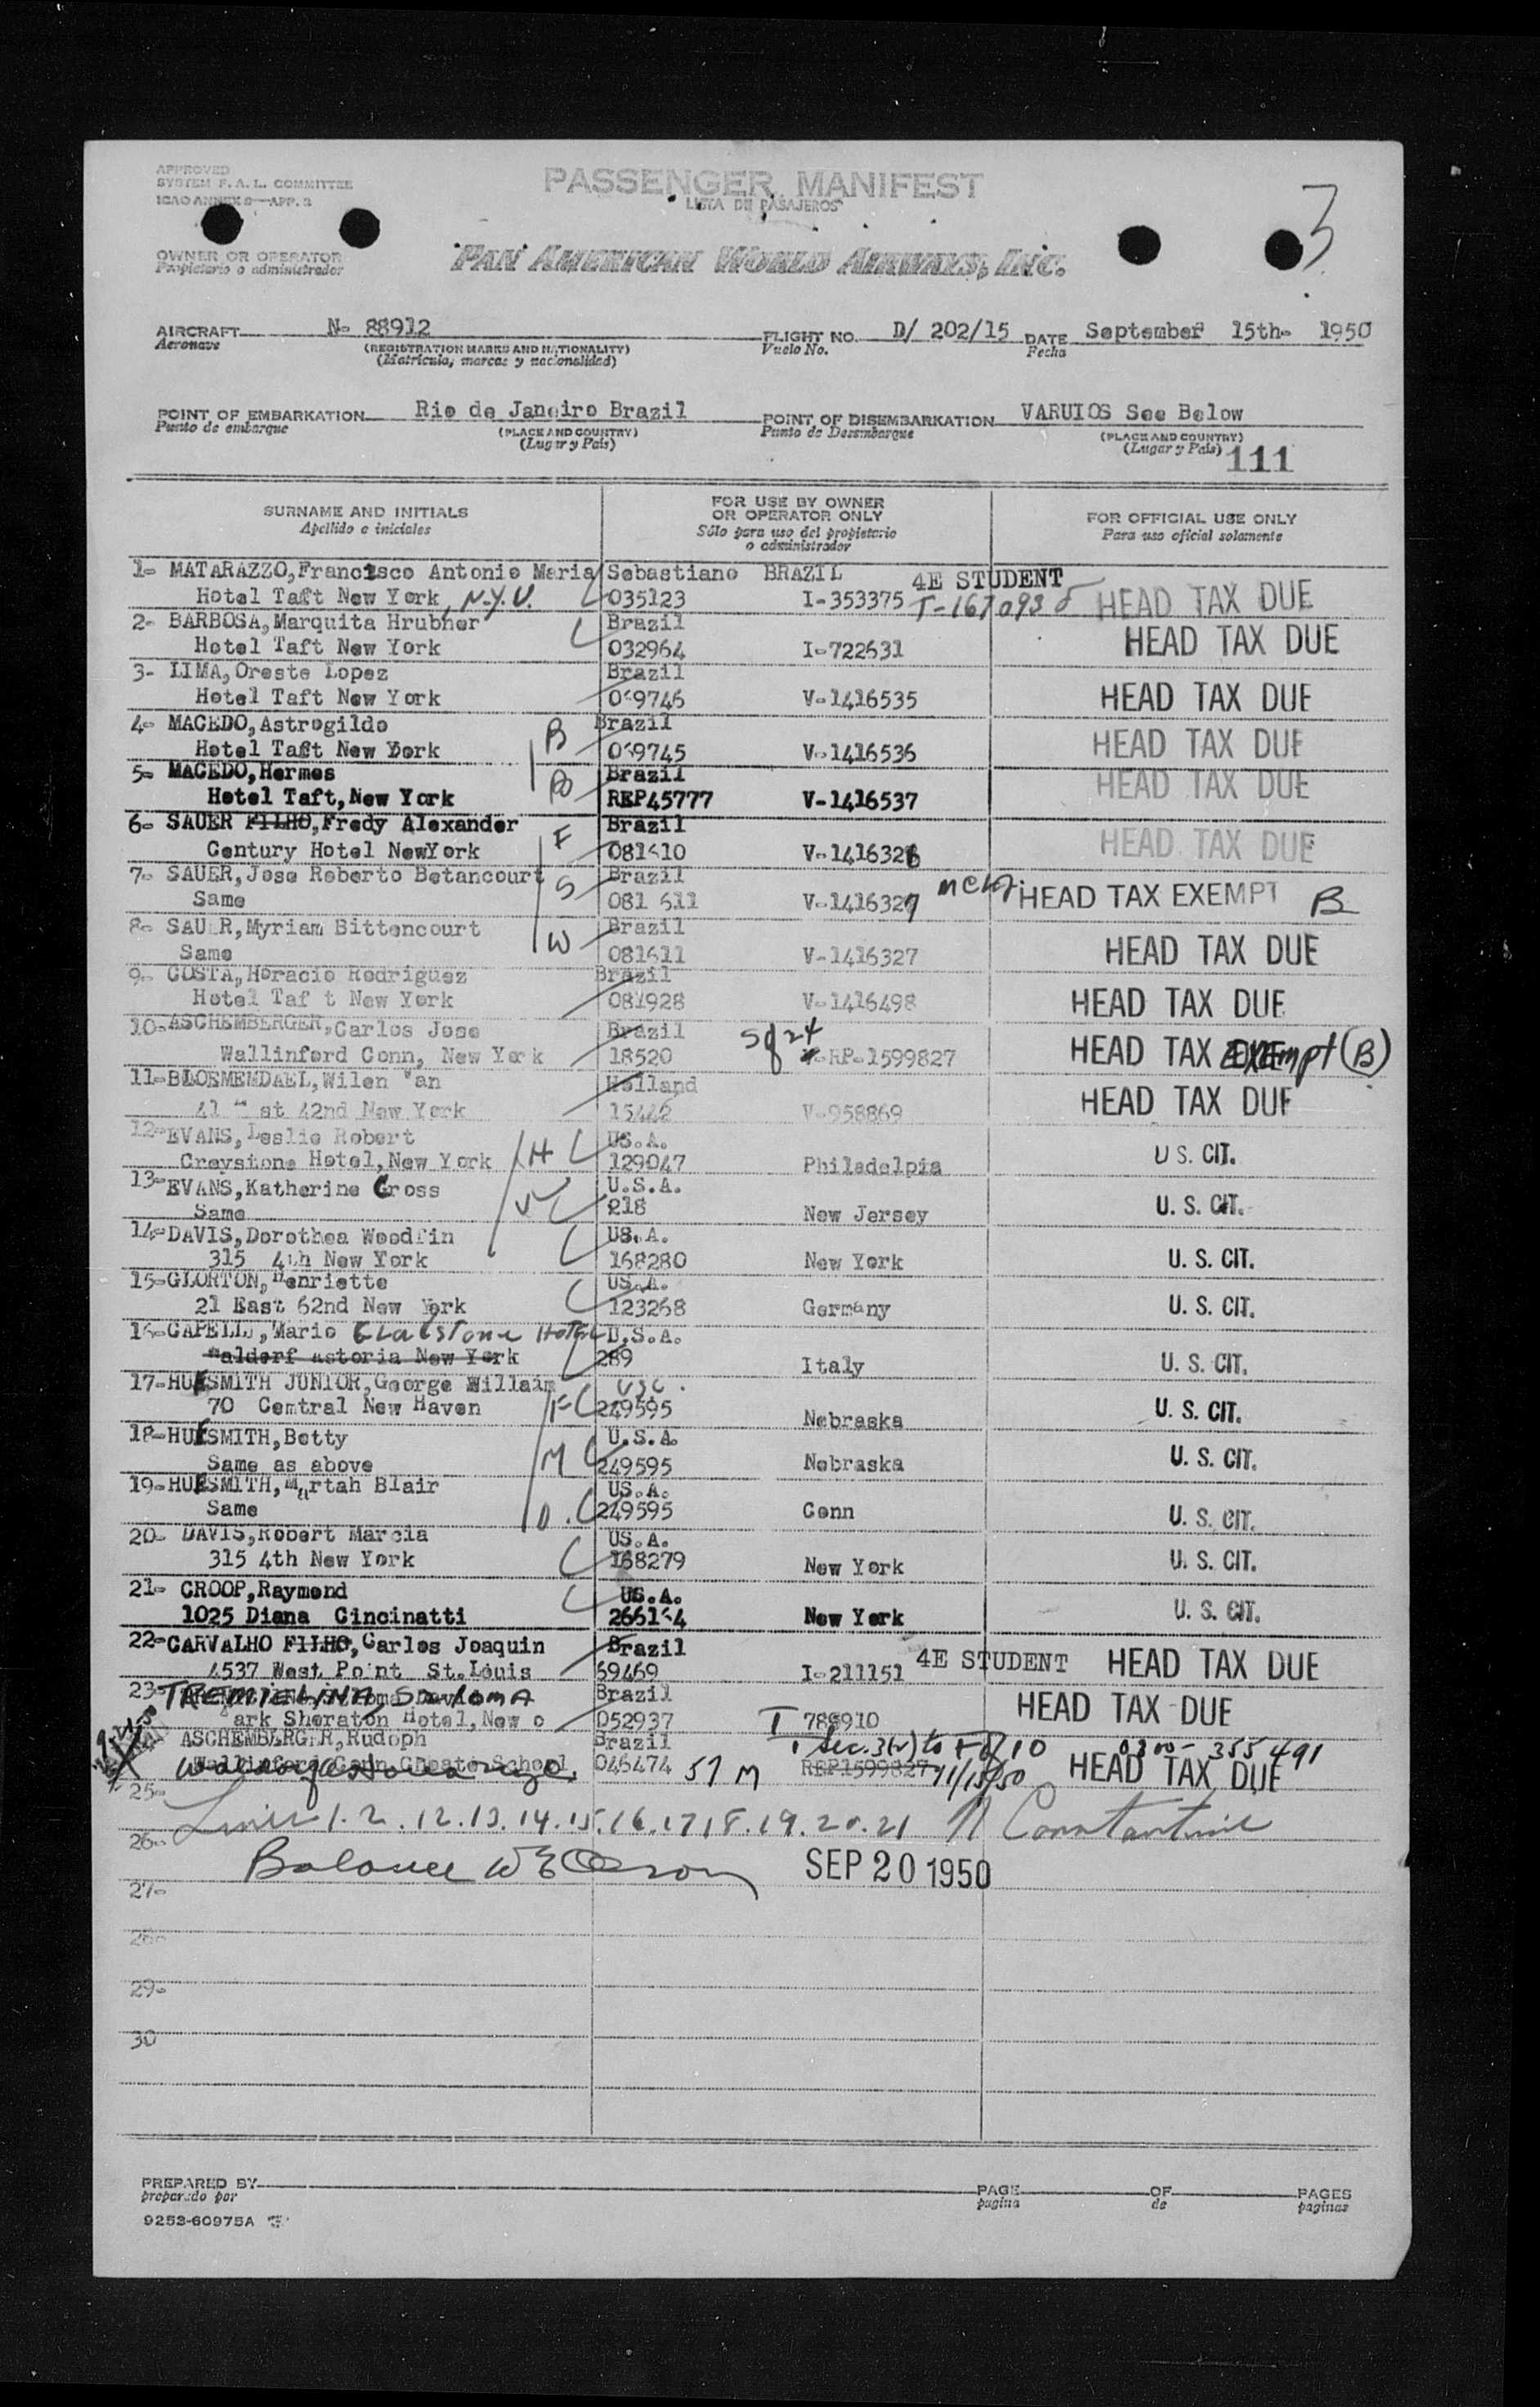 APPROVED
SYSTEM F. A. L. COMMITTEE
ICAO ANNEX 9—APP. 3
PASSENGER MANIFEST
LISTA DE PASAJEROS
3
OWNER OR OPERATOR
Propietario o administrador
PAN AMERICAN WORLD AIRWAYS, INC.
AIRCRAFT N- 88912 FLIGHT NO. D/ 202/15 DATE September 15th- 1950
Aeronave (REGISTRATION MARKS AND NATIONALITY) Vuelo No. Fecha
(Matrícula, marcas y nacionalidad)
POINT OF EMBARKATION Rio de Janeiro Brazil POINT OF DISEMBARKATION VARUIOS See Below
Punto de embarque (PLACE AND COUNTRY) Punto de Desembarque (PLACE AND COUNTRY)
(Lugar y País) (Lugar y País) 111
SURNAME AND INITIALS FOR USE BY OWNER OR OPERATOR ONLY FOR OFFICIAL USE ONLY
Apellido e iniciales Sólo para uso del propietario o administrador Para uso oficial solamente
1- MATARAZZO,Francisco Antonio Maria Sebastiano BRAZIL 4E STUDENT
Hotel Taft New York, N.Y.U. 035123 I-353375 HEAD TAX DUE
2- BARBOSA,Marquita Hrubner Brazil
Hotel Taft New York 032964 I-722631 HEAD TAX DUE
3- LIMA,Oreste Lopez Brazil
Hotel Taft New York 069746 V-1416535 HEAD TAX DUE
4- MACEDO,Astrogildo Brazil
Hotel Taft New York B 069745 V-1416536 HEAD TAX DUE
5- MACEDO,Hermes Brazil
Hotel Taft,New York B REP45777 V-1416537 HEAD TAX DUE
6- SAUER FILHO,Fredy Alexander Brazil
Century Hotel NewYork F 081610 V-1416326 HEAD TAX DUE
7- SAUER,Jose Roberto Betancourt Brazil
Same S 081 611 V-1416327 HEAD TAX EXEMPT B
8- SAUER,Myriam Bittencourt Brazil
Same W 081611 V-1416327 HEAD TAX DUE
9- COSTA,Horacio Rodriguez Brazil
Hotel Taf t New York 081928 V-1416498 HEAD TAX DUE
10-ASCHEMBERGER,Carlos Jose Brazil
Wallinford Conn, New York 18520 RP-1599827 HEAD TAX Exempt (B)
11-BLOEMENDAEL,Wilen Van Holland
41 st 42nd New York 15442 V-958869 HEAD TAX DUE
12-EVANS,Leslie Robert US.A.
Greystone Hotel,New York H 129047 Philadelpia U S. CIT.
13-EVANS,Katherine Cross U.S.A.
Same W 218 New Jersey U. S. CIT.
14-DAVIS,Dorothea Woodfin US.A.
315 4th New York 168280 New York U. S. CIT.
15-GLORTON,Henriette US.A.
21 East 62nd New York 123268 Germany U. S. CIT.
16-CAPELLO,Mario Gladstone Hotel U.S.A.
Waldorf astoria New York 289 Italy U. S. CIT.
17-HUKSMITH JUNIOR,George Willaim USC.
70 Cemtral New Haven F 249595 Nebraska U. S. CIT.
18-HUKSMITH,Betty U.S.A.
Same as above M 249595 Nebraska U. S. CIT.
19-HUKSMITH,Martah Blair US.A.
Same D. 249595 Conn U. S. CIT.
20- DAVIS,Robert Marcia US.A.
315 4th New York 168279 New York U. S. CIT.
21- CROOP,Raymond US.A.
1025 Diana Cincinatti 266164 New York U. S. CIT.
22-CARVALHO FILHO,Carlos Joaquin Brazil
4537 West Point St.Louis 69469 I-211151 4E STUDENT HEAD TAX DUE
23- TREMIELINA, SALOMA Brazil
Park Sheraton Hotel,New 052937 I 788910 HEAD TAX DUE
ASCHEMBERGER,Rudoph Brazil
046474 57 M REP1599827 11/15/50 0300- 355491 HEAD TAX DUE
25-
Lines 1.2.12.13.14.15.16.17.18.19.20.21 Constantine
26-
Balance SEP 20 1950
27-
28-
29-
30
PREPARED BY PAGE OF PAGES
preparado por pagina de paginas
9253-60975A